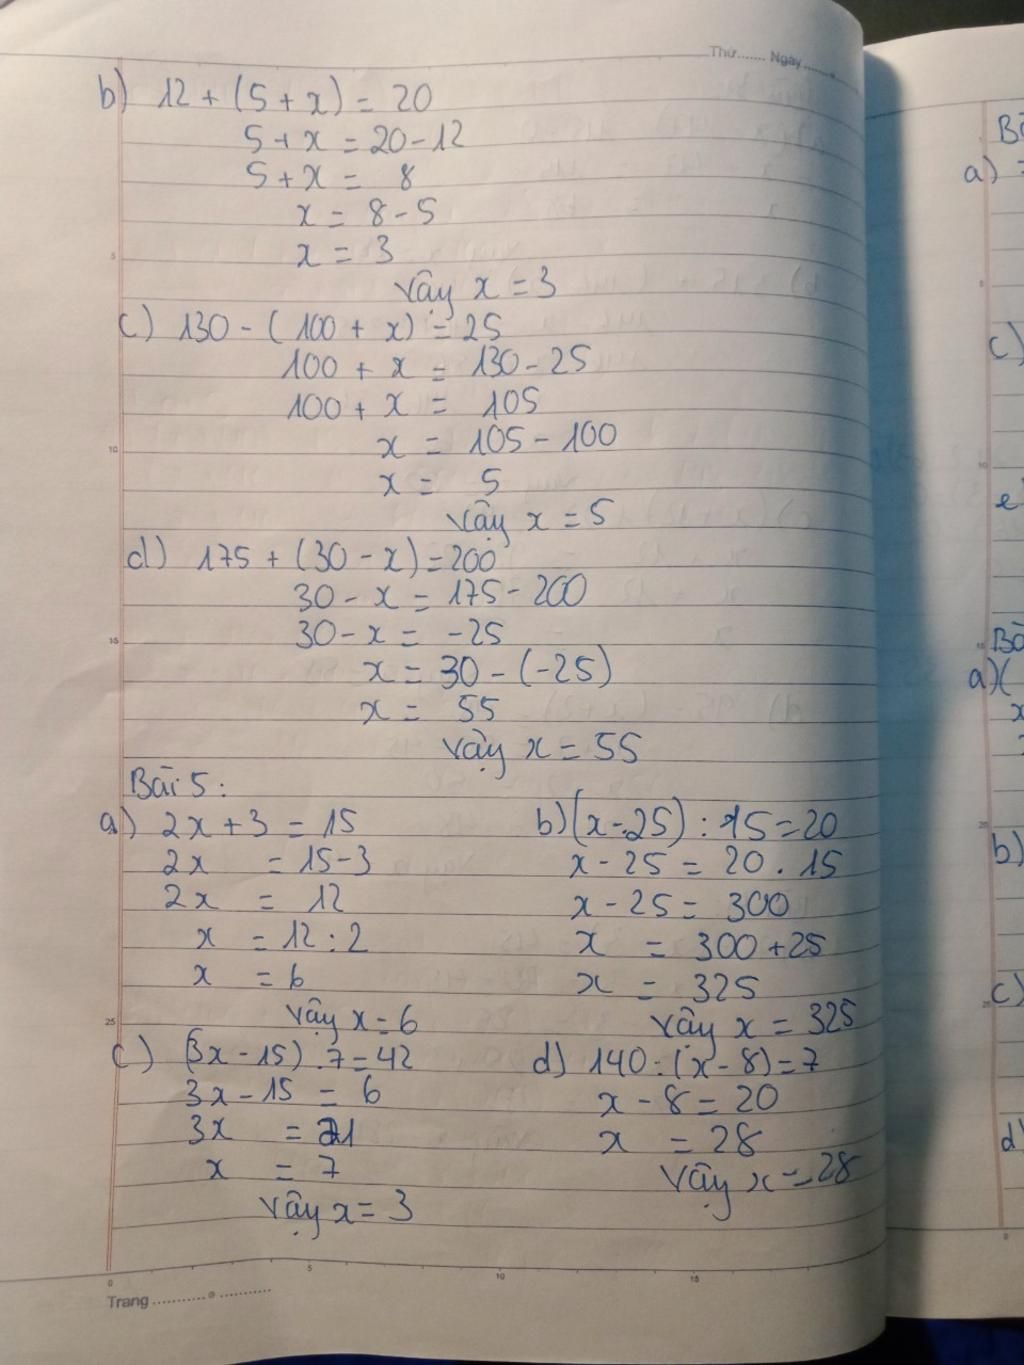 Thứ....... Ngày.......
b) 12 + (5 + x) = 20
5 + x = 20 - 12
5 + x = 8
x = 8 - 5
x = 3
Vậy x = 3
c) 130 - (100 + x) = 25
100 + x = 130 - 25
100 + x = 105
x = 105 - 100
x = 5
Vậy x = 5
d) 175 + (30 - x) = 200
30 - x = 175 - 200
30 - x = -25
x = 30 - (-25)
x = 55
Vậy x = 55
Bài 5:
a) 2x + 3 = 15
2x = 15 - 3
2x = 12
x = 12 : 2
x = 6
Vậy x = 6
b) (x - 25) : 15 = 20
x - 25 = 20 . 15
x - 25 = 300
x = 300 + 25
x = 325
Vậy x = 325
c) (3x - 15) . 7 = 42
3x - 15 = 6
3x = 21
x = 7
Vậy x = 3
d) 140 : (x - 8) = 7
x - 8 = 20
x = 28
Vậy x = 28
5
10
15
25
0 5 10 15
Trang
a)
c)
a)(
x
b)
c)